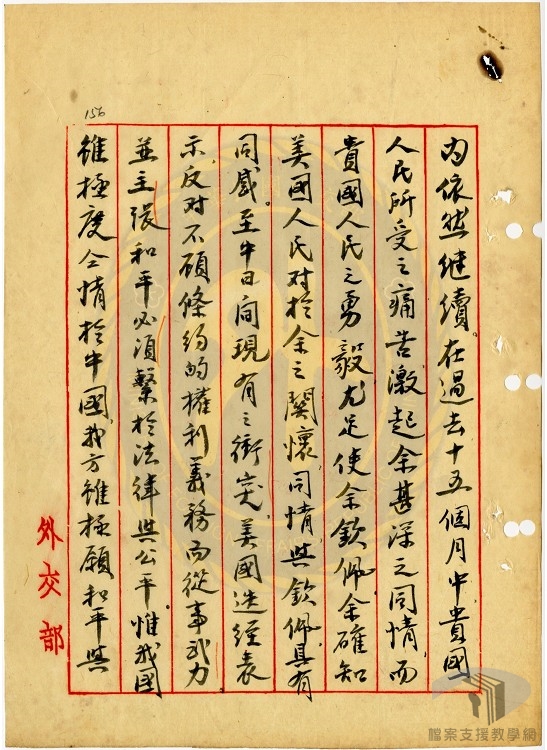 內依然继續在過去十五個月中貴國
人民所受之痛苦激起余甚深之同情而
貴國人民之勇毅尤足使余欽佩余確知
美國人民对於余之関懷同情與欽佩具有
同感。至中日間現有之衝突美國迭經表
示反对不顧條約的權利義務而從事武力
並主張和平必須繫於法律與公平惟我國
雖極度仝情於中國我方雖極願和平與
外交部
156
檔案支援教學網